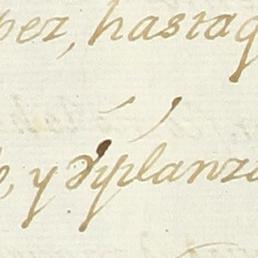 pez, hasta q
e, y dyplanza